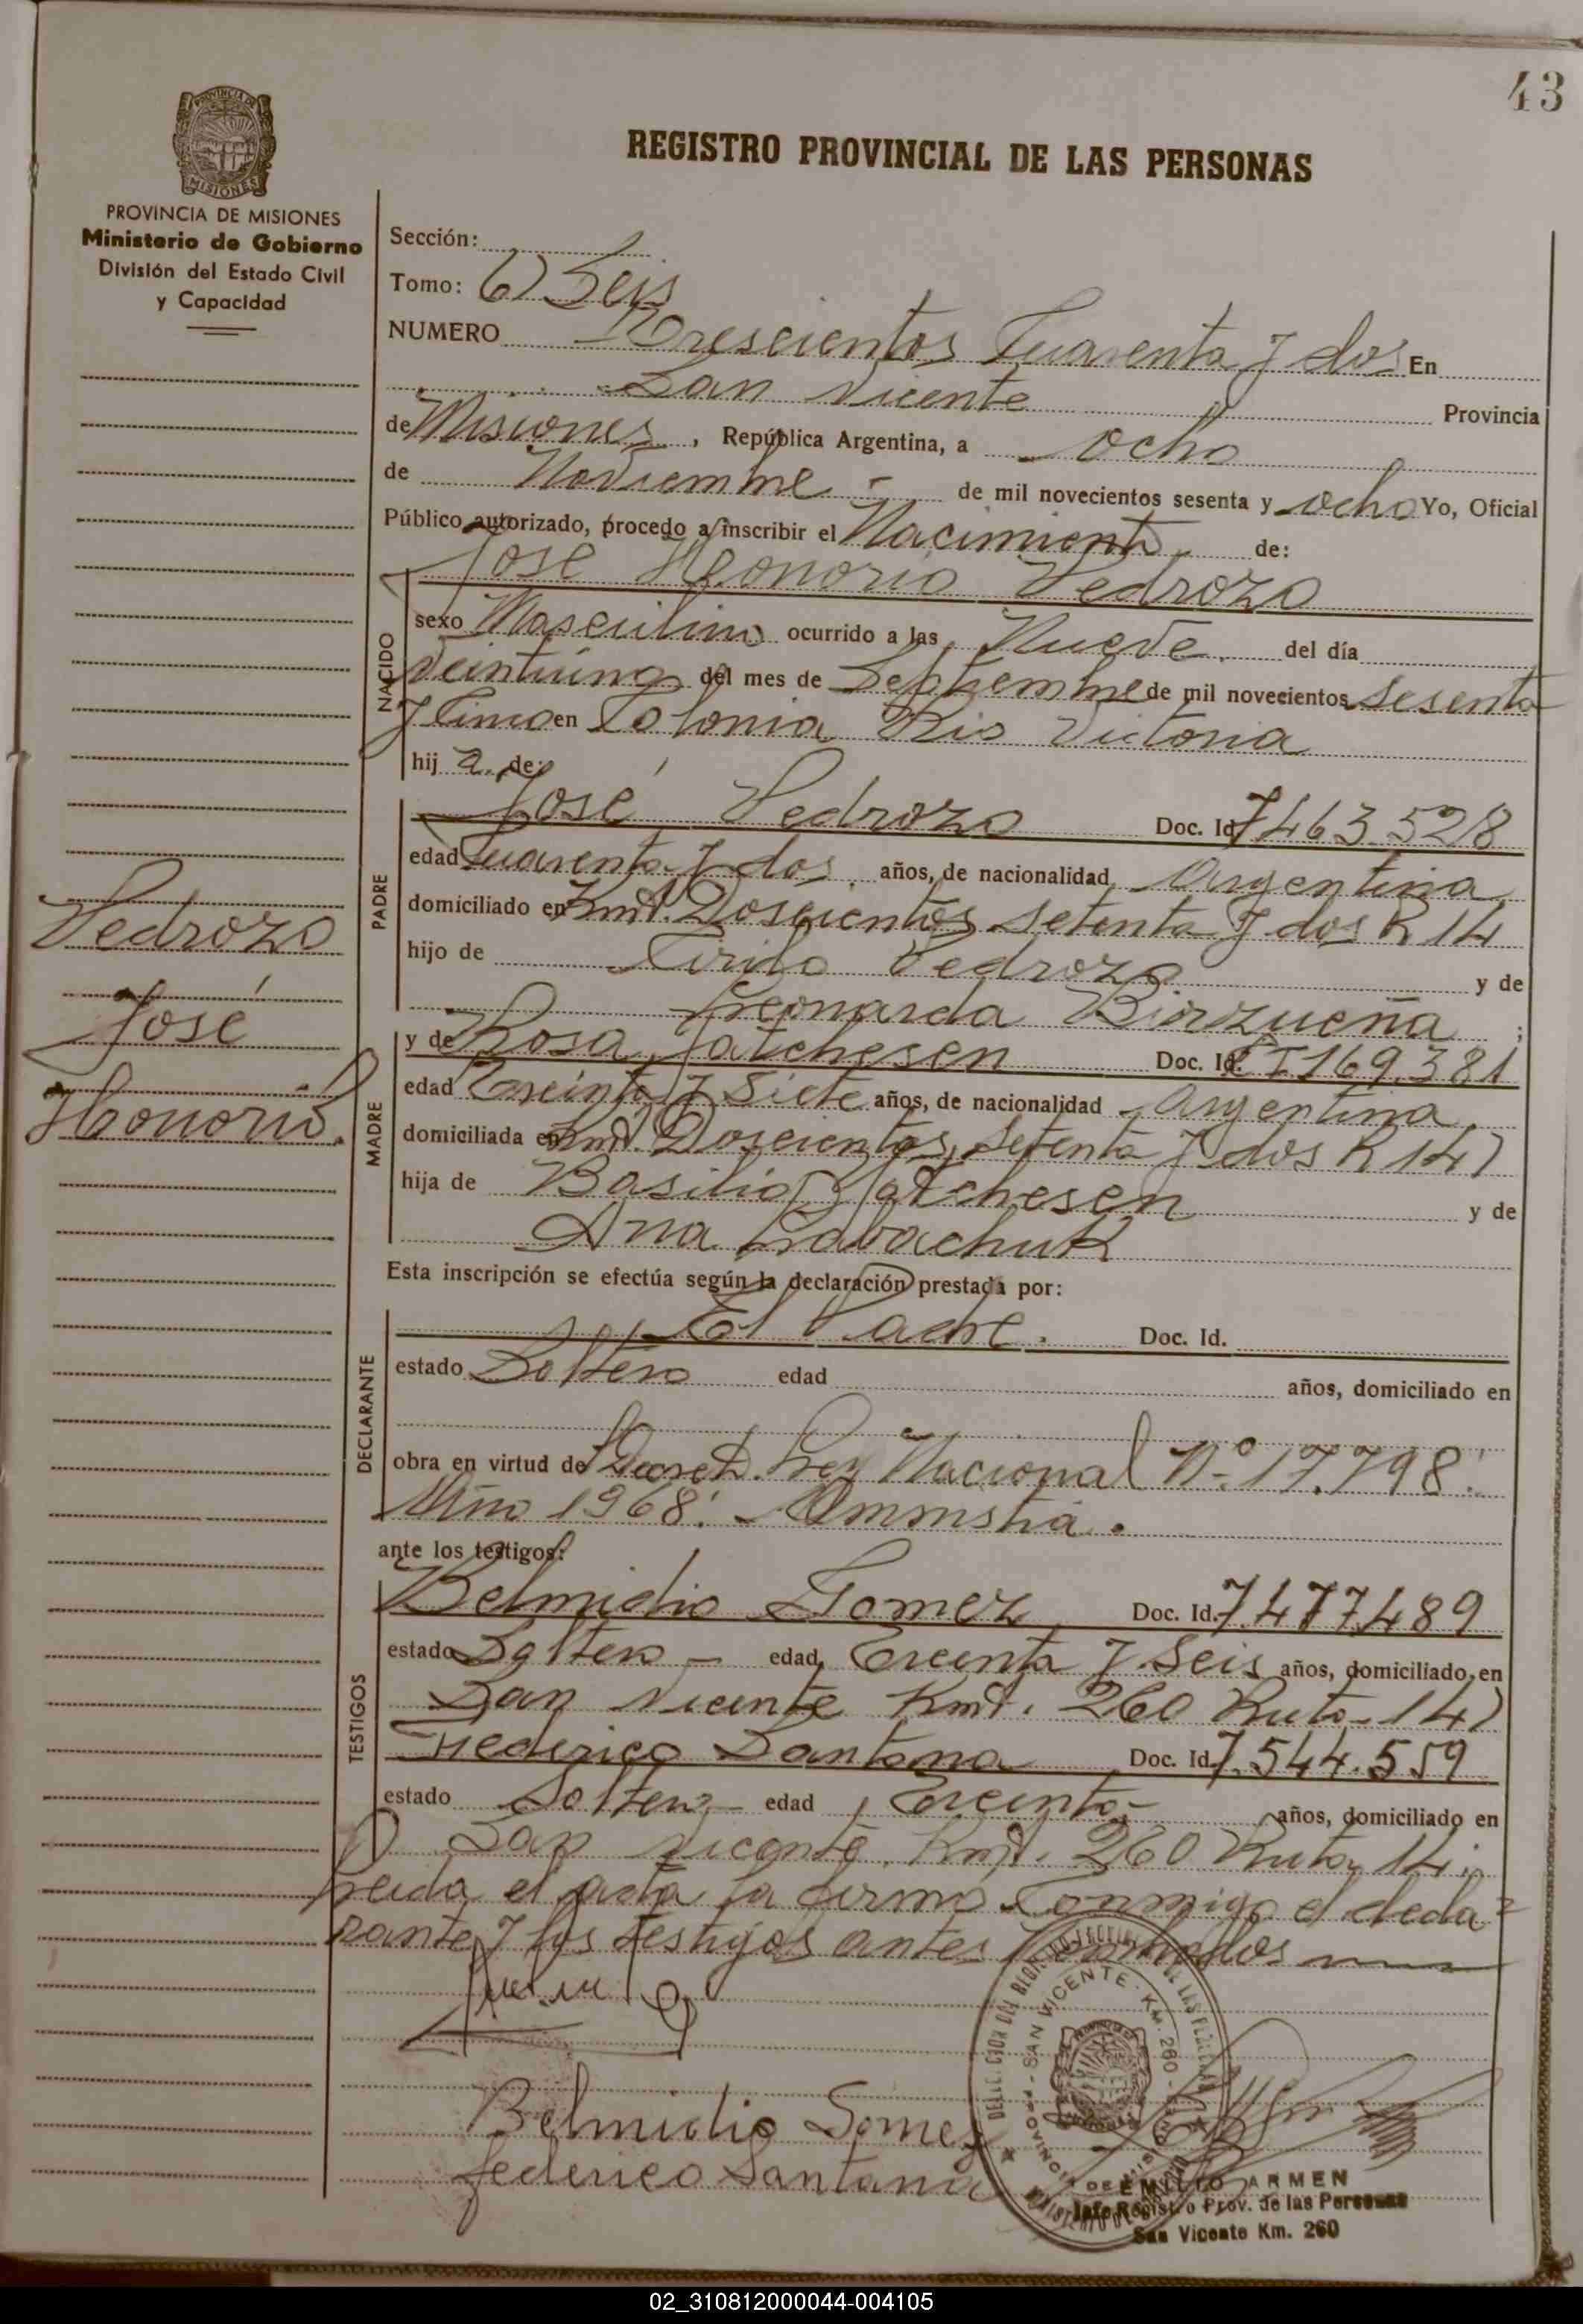 43
PROVINCIA DE
MISIONES
PROVINCIA DE MISIONES
Ministerio de Gobierno
División del Estado Civil
y Capacidad
REGISTRO PROVINCIAL DE LAS PERSONAS
Sección:
Tomo: 6) Seis
NUMERO Trescientos Cuarenta y dos En
San Vicente Provincia
de Misiones, República Argentina, a ocho
de Noviembre - de mil novecientos sesenta y ocho Yo, Oficial
Público autorizado, procedo a inscribir el Nacimiento de:
José Honorio Pedrozo
NACIDO
sexo Masculino ocurrido a las Nueve del día
veintiuno del mes de Septiembre de mil novecientos sesenta
y Cinco en Colonia Rio Victoria
hij a de:
PADRE
José Pedrozo Doc. Id. 7463.528
edad Cuarenta y dos años, de nacionalidad Argentina
domiciliado en Kmt. Doscientos setenta y dos R 14
hijo de Cirilo Pedrozo y de
Leonarda Birizueña ;
MADRE
y de Rosa Jatchesen Doc. Id. CI 169.381
edad Treinta y Siete años, de nacionalidad Argentina
domiciliada en Kmt. Doscientos Setenta y dos R 14)
hija de Basilio Jatchesen y de
Ana Labachuk
Esta inscripción se efectúa según la declaración prestada por:
DECLARANTE
El Padre. Doc. Id.
estado Soltero edad años, domiciliado en
obra en virtud de Decret. Ley Nacional Nº 17.798.
Año 1968. Amnistia.
ante los testigos:
TESTIGOS
Belmidio Gomez Doc. Id. 7.477.489
estado Soltero - edad Treinta y Seis años, domiciliado en
San Vicente Kmt. 260 Ruta 14)
Federico Santana Doc. Id. 7.544.559
estado Soltero - edad Treinta años, domiciliado en
San Vicente Kmt. 260 Ruta 14;
Leida el acta la firmo Conmigo el decla=
rante y los testigos antes nombrados
Belmidio Gomez
federico Santana
SAN VICENTE - KM. 260 - PROVINCIA DE MISIONES
EMILIO ARMEN
Jefe Registro Prov. de las Personas
San Vicente Km. 260
Pedrozo
José
Honorio.
02_310812000044-004105